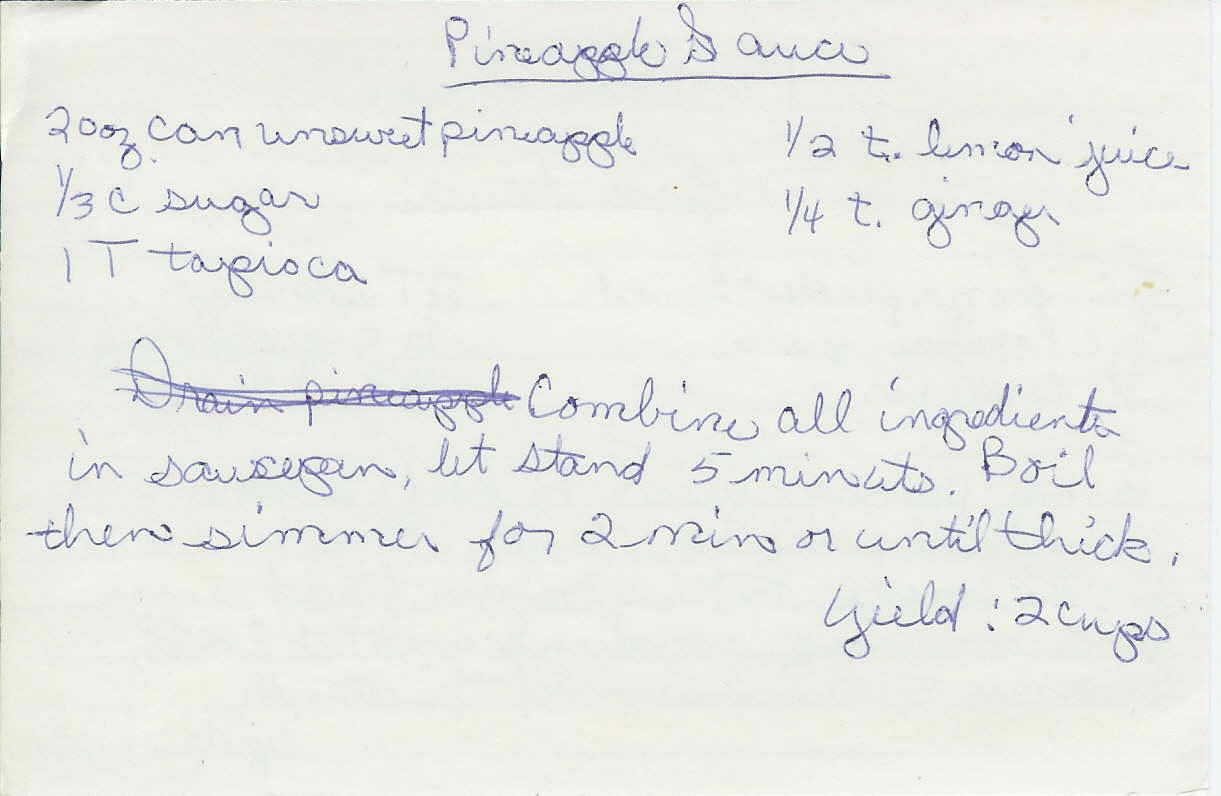 Pineapple Sauce
20oz can unsweet pineapple
1/2 t. lemon juice
1/3 C sugar
1/4 t. ginger
1 T tapioca
Drain pineapple Combine all ingredients
in saucepan, let stand 5 minutes. Boil
then simmer for 2 min or until thick.
Yield: 2 cups